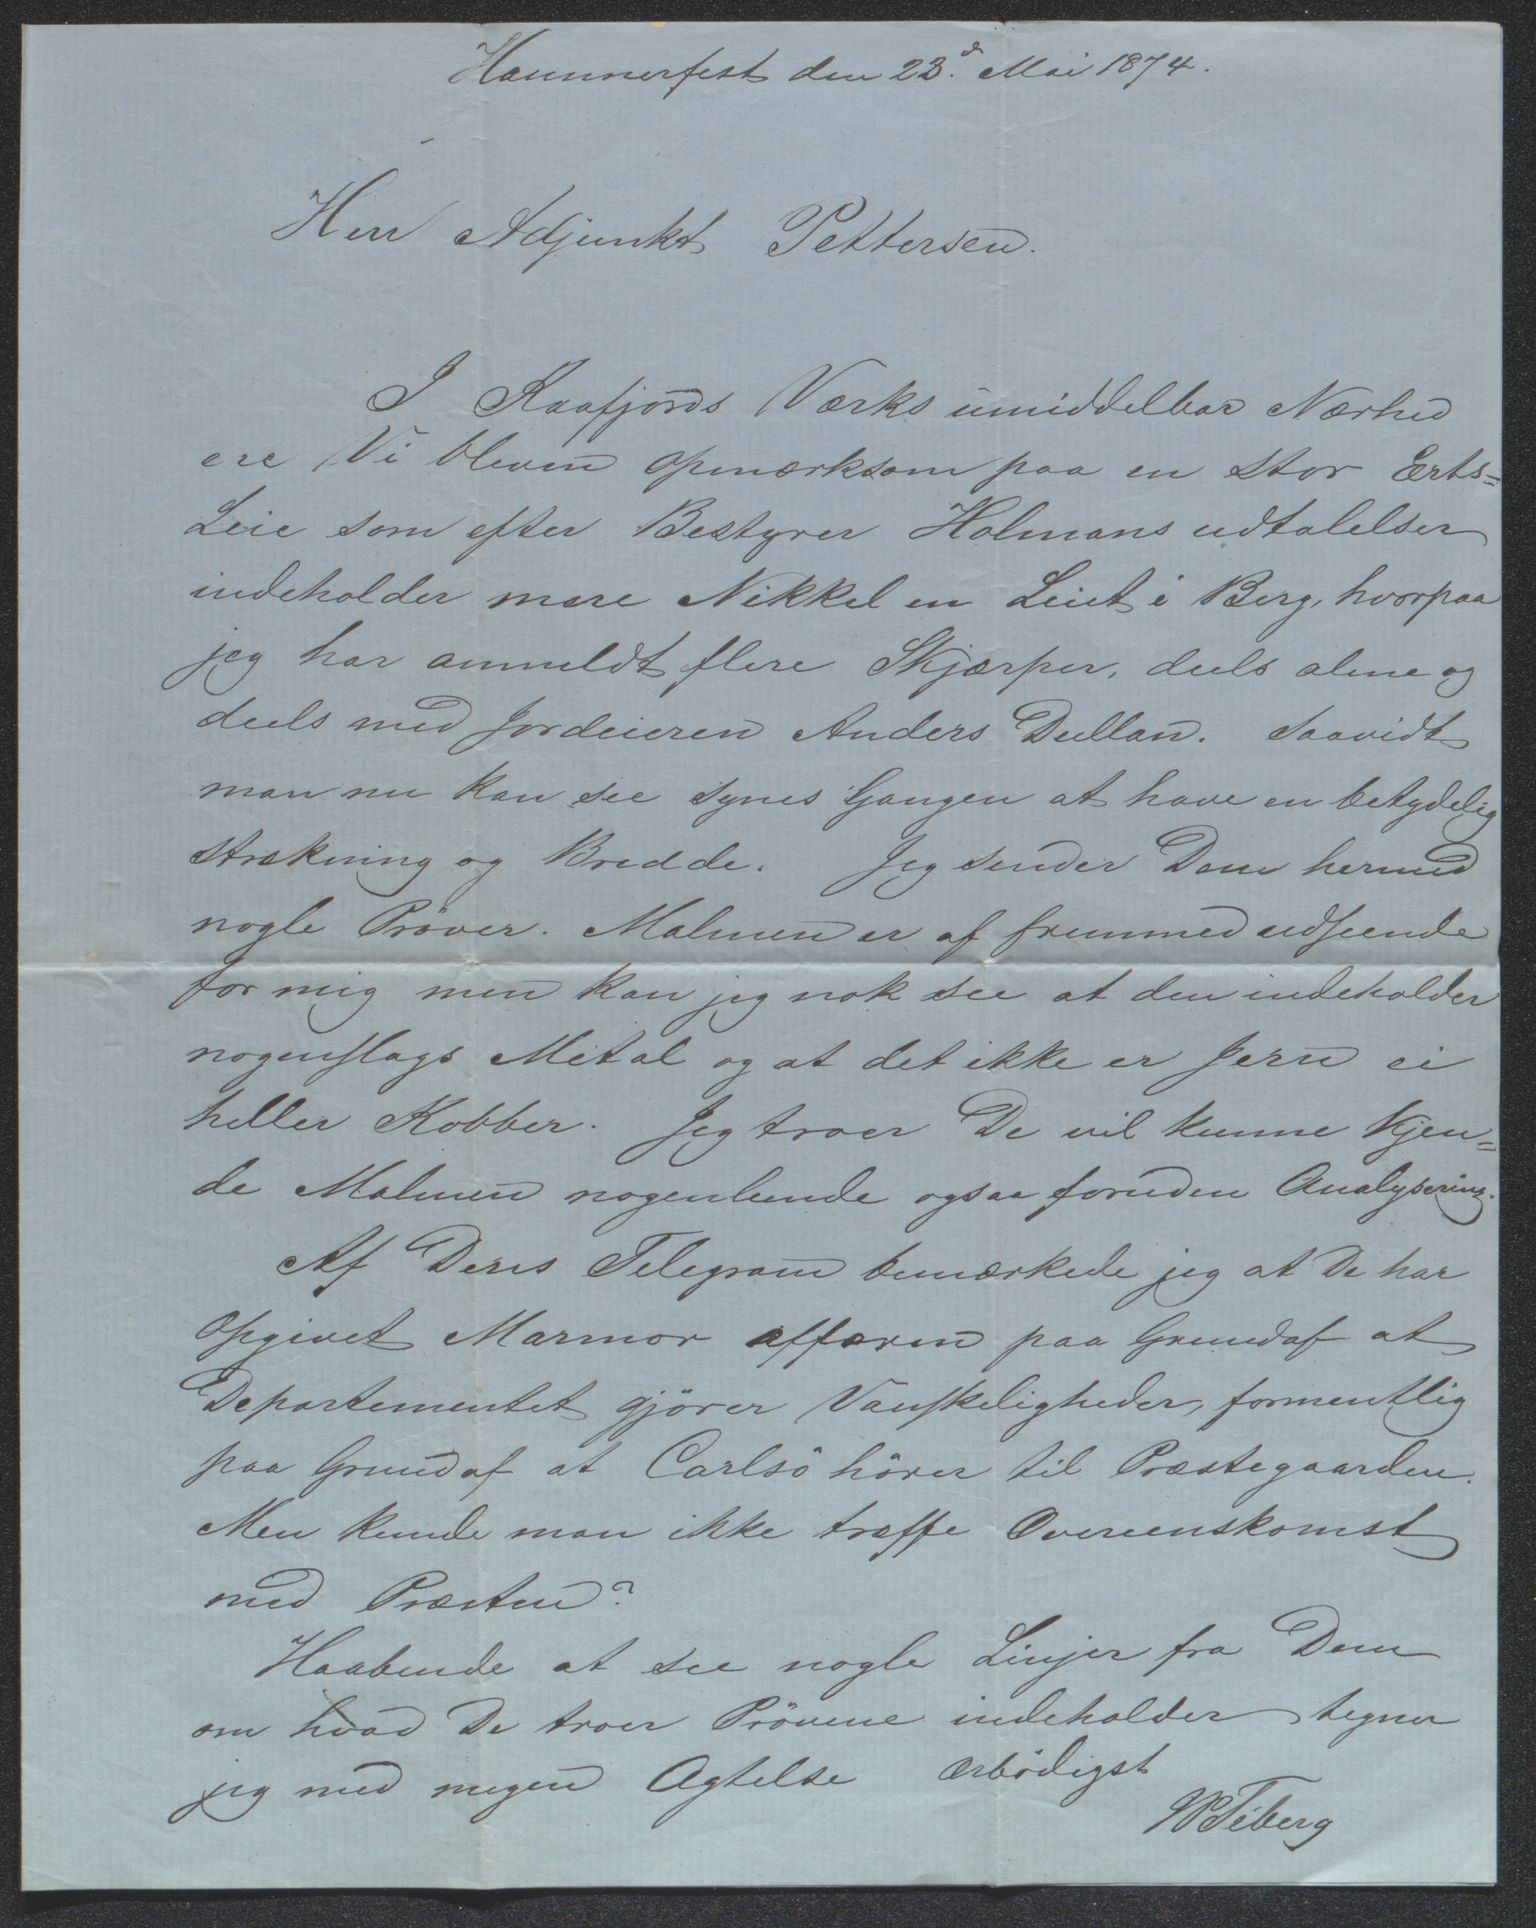 Hammerfest den 23d. Mai 1874.
Herr Adjunkt Pettersen.
I Kaafjords Værks umiddelbar Nærhed
ere Vi bleven opmærksom paa en stor Erts=
Leie som efter Bestyrer Holmans udtalelser
indeholder mere Nikkel en Leiet i Berg, hvorpaa
jeg har anmeldt flere Skjærper, deels alene og
deels med Jordeieren Anders Dullan. Saavidt
man nu kan see synes Gangen at have en betydelig
strækning og Bredde. Jeg sender Dem hermed
nogle Pröver. Malmen er af fremmed udseende
for mig men kan jeg nok see at den indeholder
nogenslags Metal og at det ikke er Jern ei
heller Kobber. Jeg troer De vil kunne kjen=
de Malmen nogenlunde ogsaa foruden Analysering.
Af Deres Telegram bemærkede jeg at De har
opgivet Marmor affæren paa Grund af at
Departementet gjörer Vanskeligheder, formentlig
paa Grund af at Carlsö hörer til Præstegaarden.
Men kunde man ikke træffe Overeenskomst
med Præsten?
Haabende at see nogle Linjer fra Dem
om hvad De troer Prövene indeholder tegner
jeg med megen Agtelse ærbödigst
Tiberg